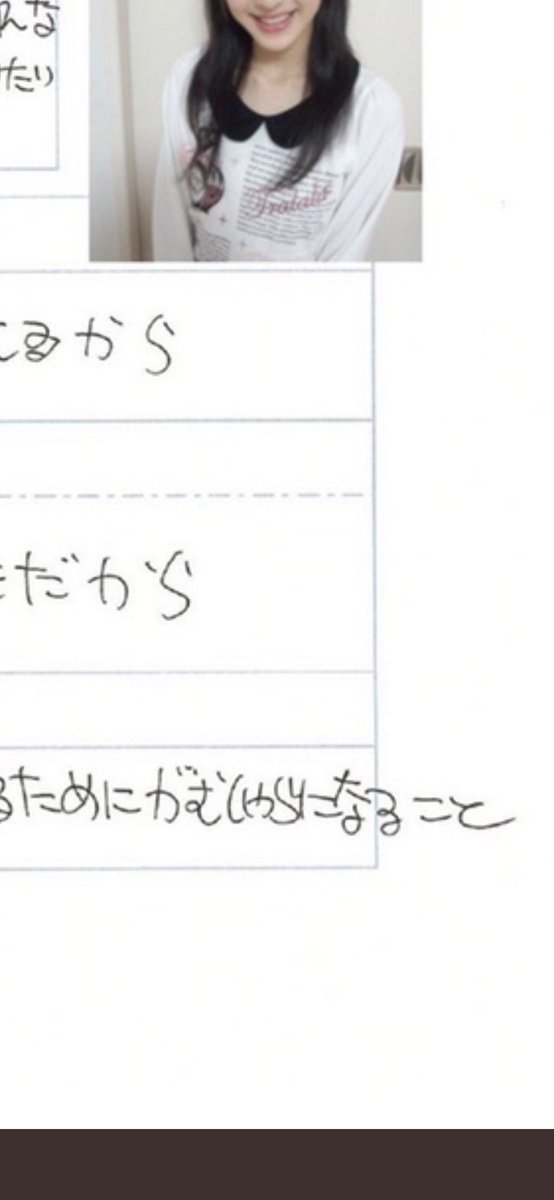 んな
たり
Tralala
るから
だから
るためにがむしゃらになること